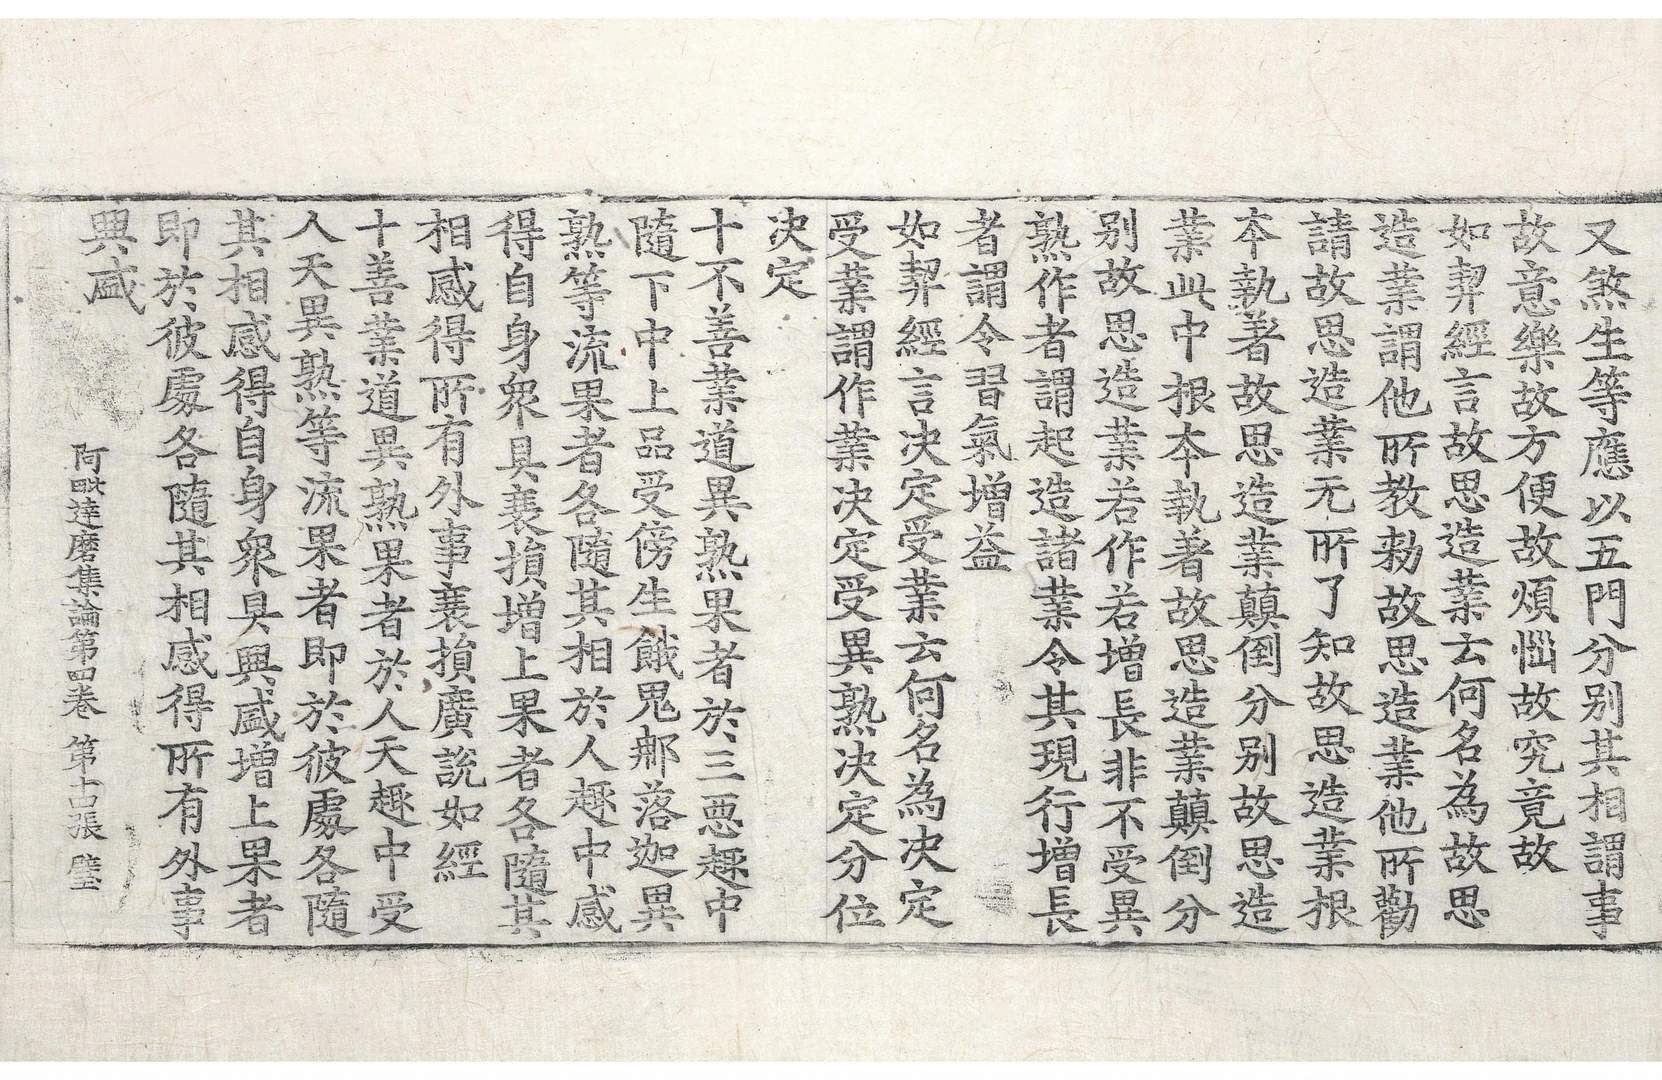 又煞生等應以五門分别其相謂事
故意樂故方便故煩惱故究竟故
如契經言故思造業云何名為故思
造業謂他所教勑故思造業他所勸
請故思造業无所了知故思造業根
夲執著故思造業顛倒分别故思造
業此中根夲執著故思造業顛倒分
别故思造業若作若增長非不受異
熟作者謂起造諸業令其現行增長
者謂令習氣增益
如契經言决定受業云何名為决定
受業謂作業决定受異熟决定分位
决定
十不善業道異熟果者於三惡趣中
隨下中上品受傍生餓鬼郍落迦異
熟等流果者各隨其相於人趣中感
得自身衆具衰損增上果者各隨其
相感得所有外事衰損廣說如經
十善業道異熟果者於人天趣中受
人天異熟等流果者即於彼處各隨
其相感得自身衆具興盛增上果者
即於彼處各隨其相感得所有外事
興盛
阿毗達磨集論第四卷 第十四張 璧